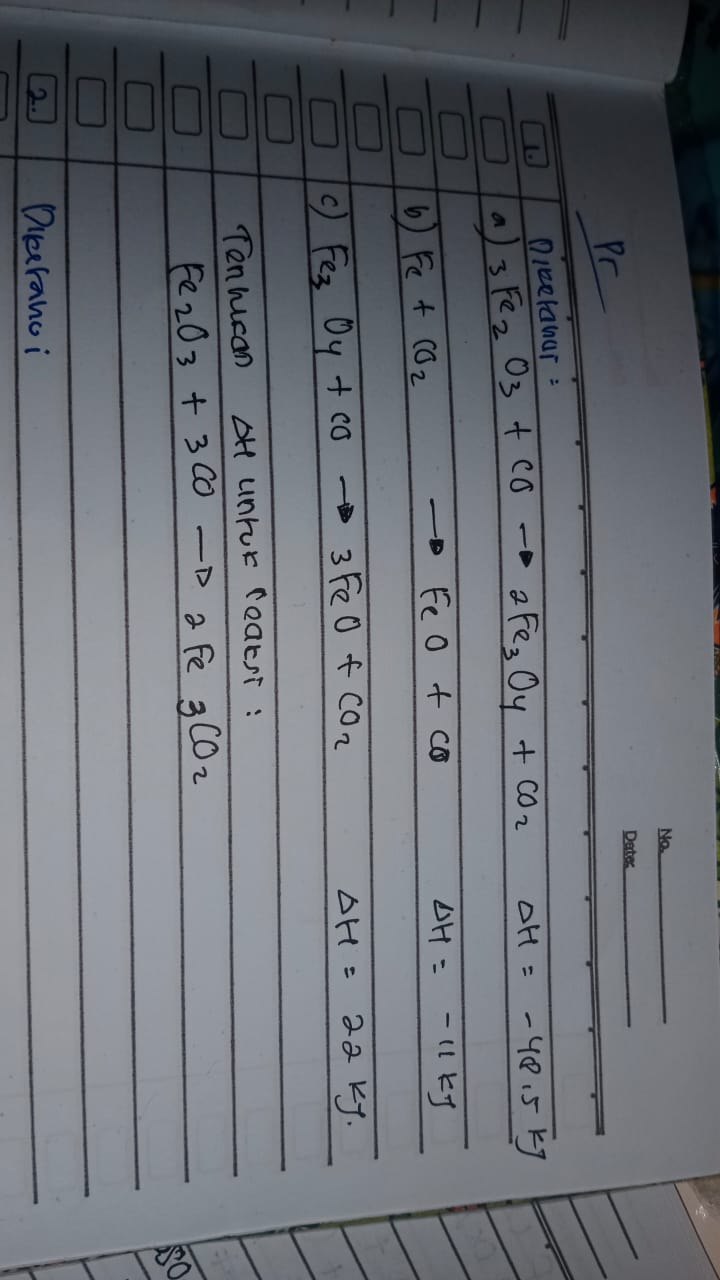 No.
Date:
Pr
1. Diketahui :
a) 3Fe2O3 + CO → 2Fe3O4 + CO2 ΔH = -48,5 KJ
b) Fe + CO2 → FeO + CO ΔH = -11 KJ
c) Fe3O4 + CO → 3FeO + CO2 ΔH = 22 KJ.
Tentukan ΔH untuk reaksi :
Fe2O3 + 3CO → 2Fe 3CO2
2. Diketahui